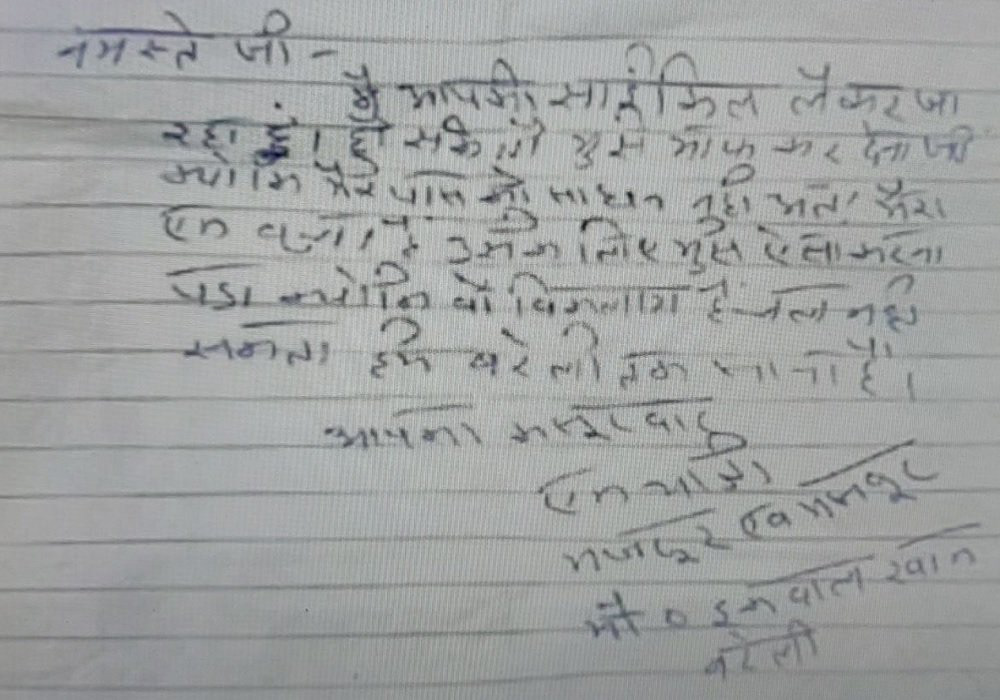 नमस्ते जी -
मैं आपकी साईकिल लेकर जा
रहा हूं। हो सके तो मुझे माफ कर देना जी
क्योंकि मेरे पास कोई साधन नहीं था मेरा
एक बच्चा है उसके लिए मुझे ऐसा करना
पड़ा क्योंकि वो विकलांग है चल नहीं
सकता हमें बरेली तक जाना है।
आपका कसूरवार
एक यात्री
मजदूर एवं मजबूर
मो० इकबाल खान
बरेली